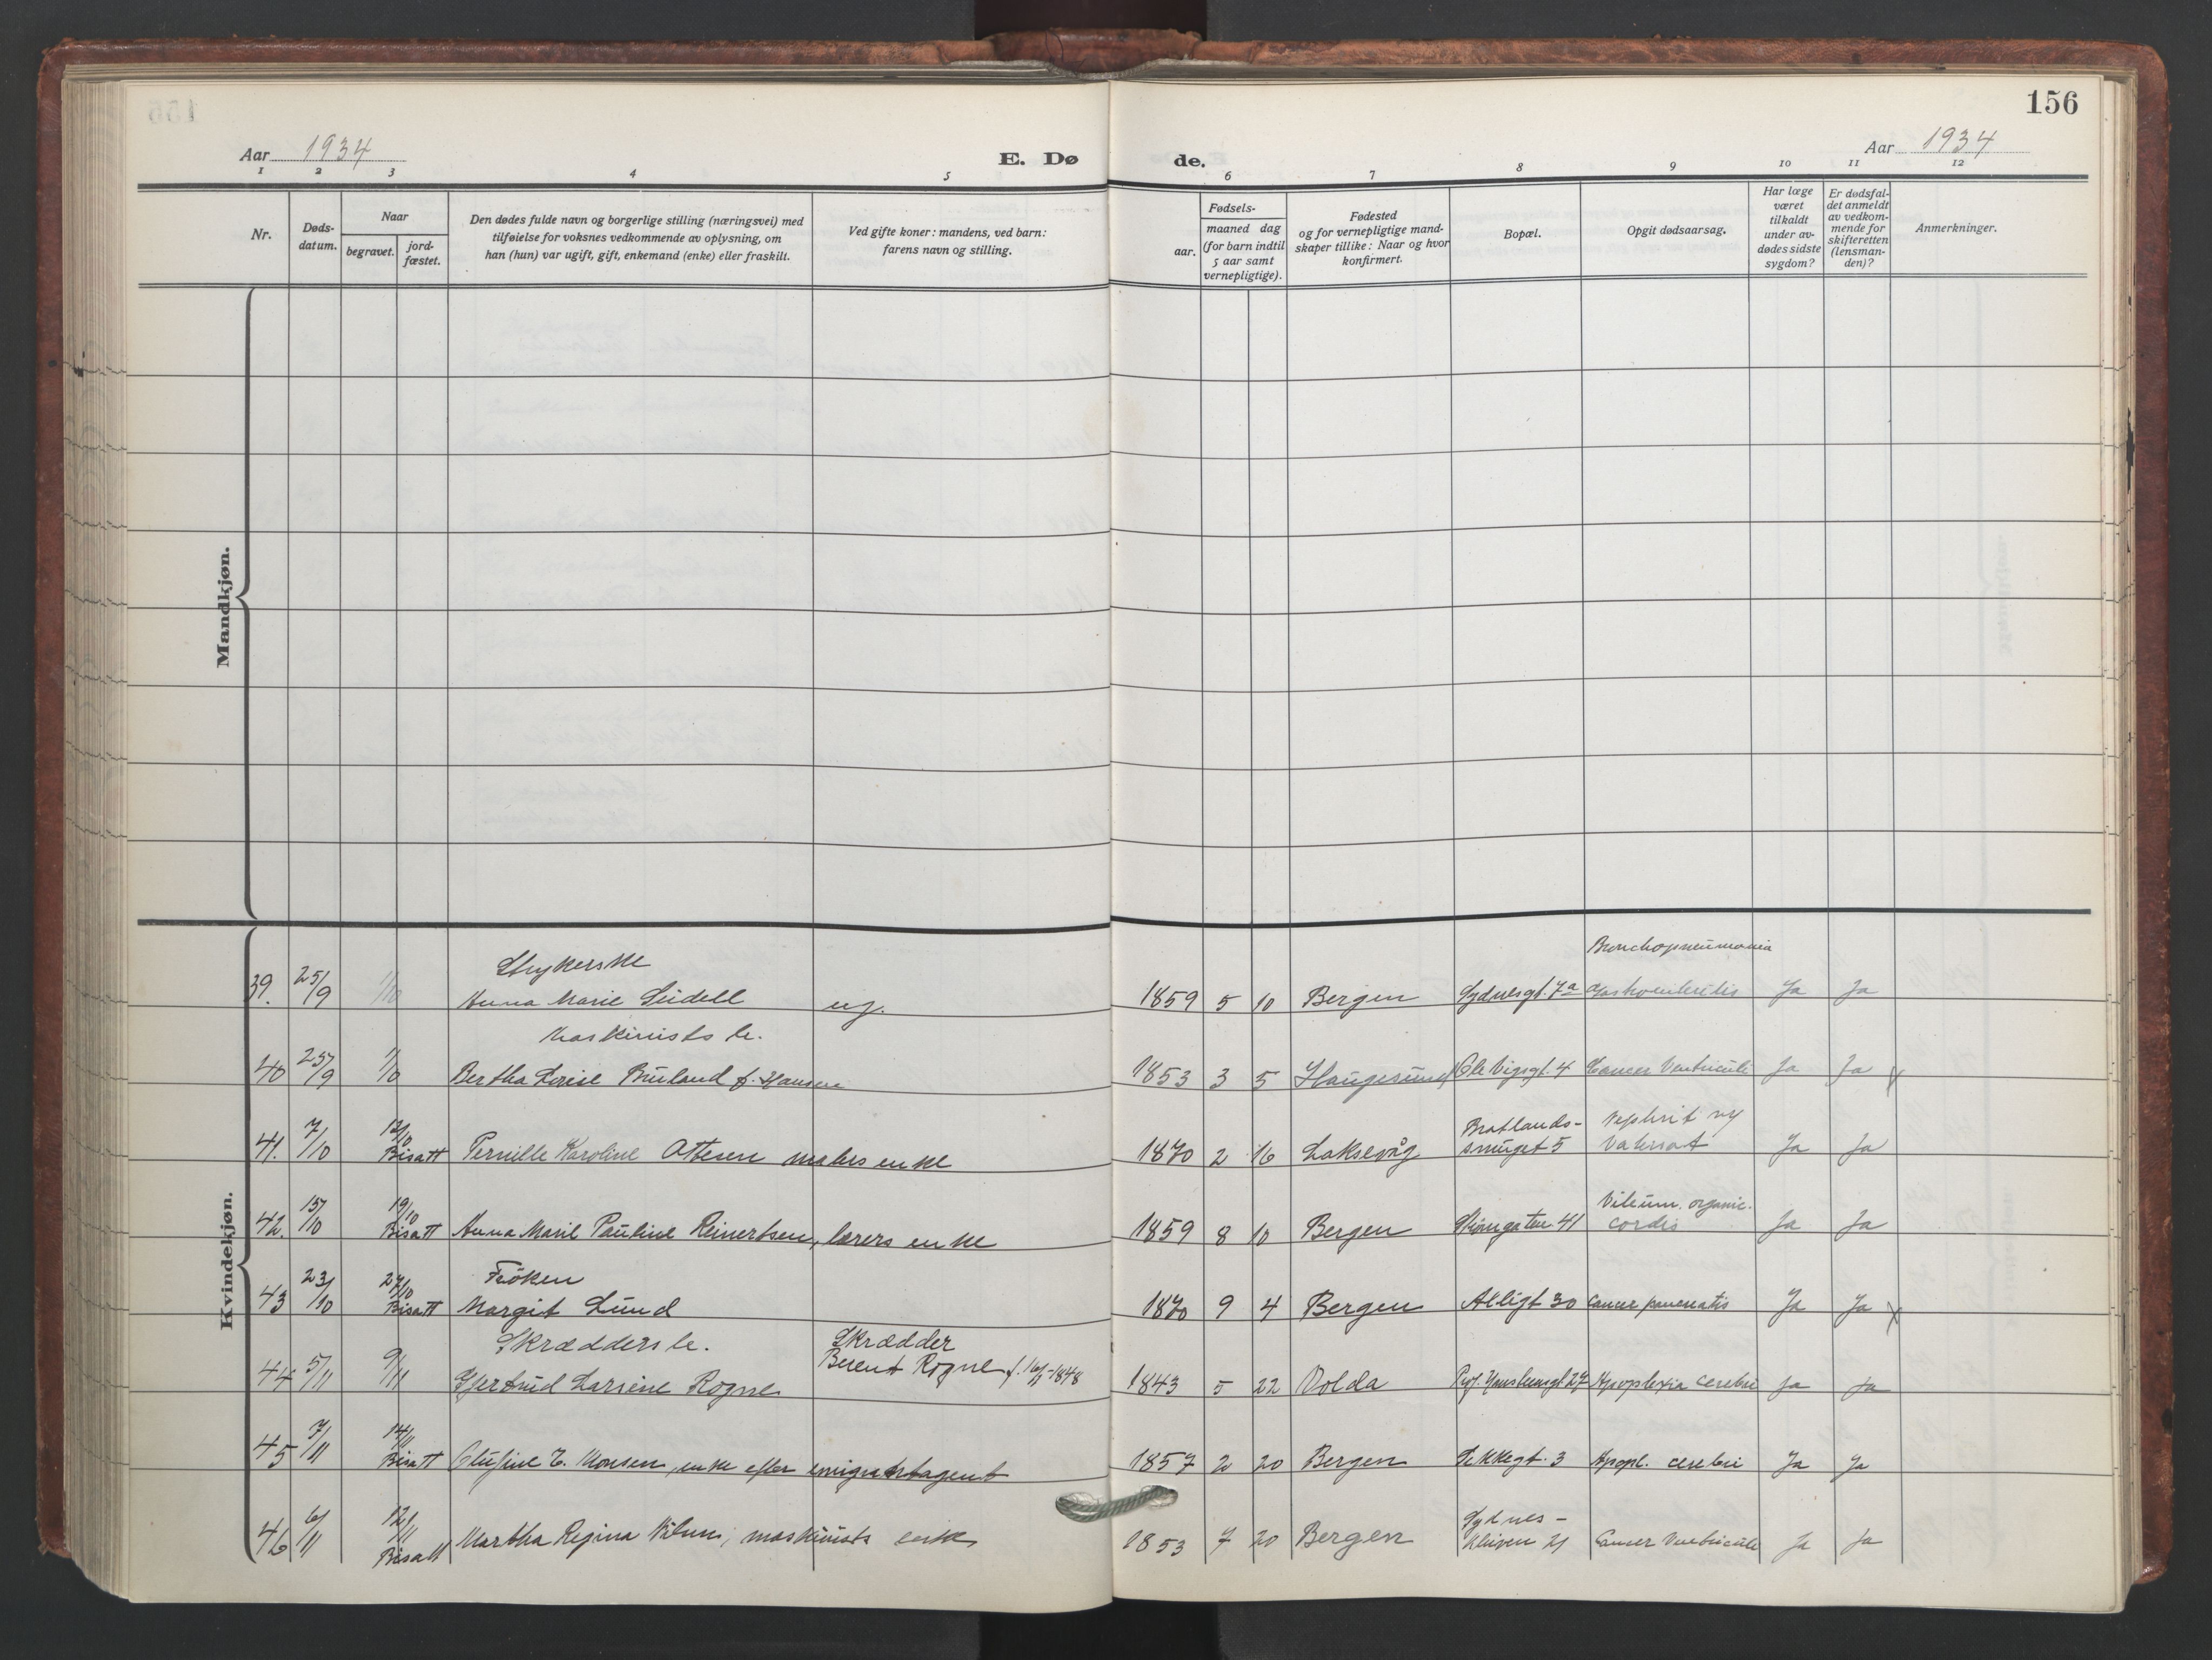 156
Aar 1934
E. Dø
de.
Aar 1934
1 2 3 4 5 6 7 8 9 10 11 12
Nr.
Døds-
datum.
Naar
begravet.
jord-
fæstet.
Den dødes fulde navn og borgerlige stilling (næringsvei) med
tilføielse for voksnes vedkommende av oplysning, om
han (hun) var ugift, gift, enkemand (enke) eller fraskilt.
Ved gifte koner: mandens, ved barn:
farens navn og stilling.
Fødsels-
aar.
maaned dag
(for barn indtil
5 aar samt
vernepligtige).
Fødested
og for vernepligtige mand-
skaper tillike: Naar og hvor
konfirmert.
Bopæl.
Opgit dødsaarsag.
Har læge
været
tilkaldt
under av-
dødes sidste
sygdom?
Er dødsfal-
det anmeldt
av vedkom-
mende for
skifteretten
(lensman-
den)?
Anmerkninger.
Mandkjøn.
Kvindekjøn.
Strykerske Bronchopneumonia
39. 25/9 1/10 Anna Marie Lidell ug. 1859 5 10 Bergen Sydnesgt. 7a Gastroenteritis Ja Ja
Maskinists e.
40 25/9 1/10 Bertha Lovise Bruland f. Hansen 1853 3 5 Haugesund Ole Vigsgt. 4 Cancer Ventriculi Ja Ja
12/10 Bratlands- Nephrit
41. 7/10 Bisatt Pernille Karoline Ottesen malers enke 1870 2 16 Laksevåg smuget 5 Ja Ja
19/10 Vitium. organic.
42. 15/10 Bisatt Anna Marie Pauline Reinertsen, lærers enke 1859 8 10 Bergen 41 cordis Ja Ja
27/10 Frøken
43 23/10 Bisatt Margit Lund 1870 9 4 Bergen Alligt 30 Cancer pancreatis Ja Ja
Skrædders e. Skrædder
44 5/11 9/11 Gjertrud Larsine Rogne Berent Rogne f. 1848 1843 5 22 Volda Prof. Hansteensgt 27 Apoplexia cerebri Ja Ja
14/11
45 7/11 Bisatt Olufine E. Monsen, enke efter emigrantagent 1857 2 20 Bergen Dokkegt. 3 Apopl. cerebri Ja Ja
12/11 Sydnes-
46 6/11 Bisatt Martha Regina, maskinists enke 1853 7 20 Bergen kleiven 21 Cancer Ventriculi Ja Ja